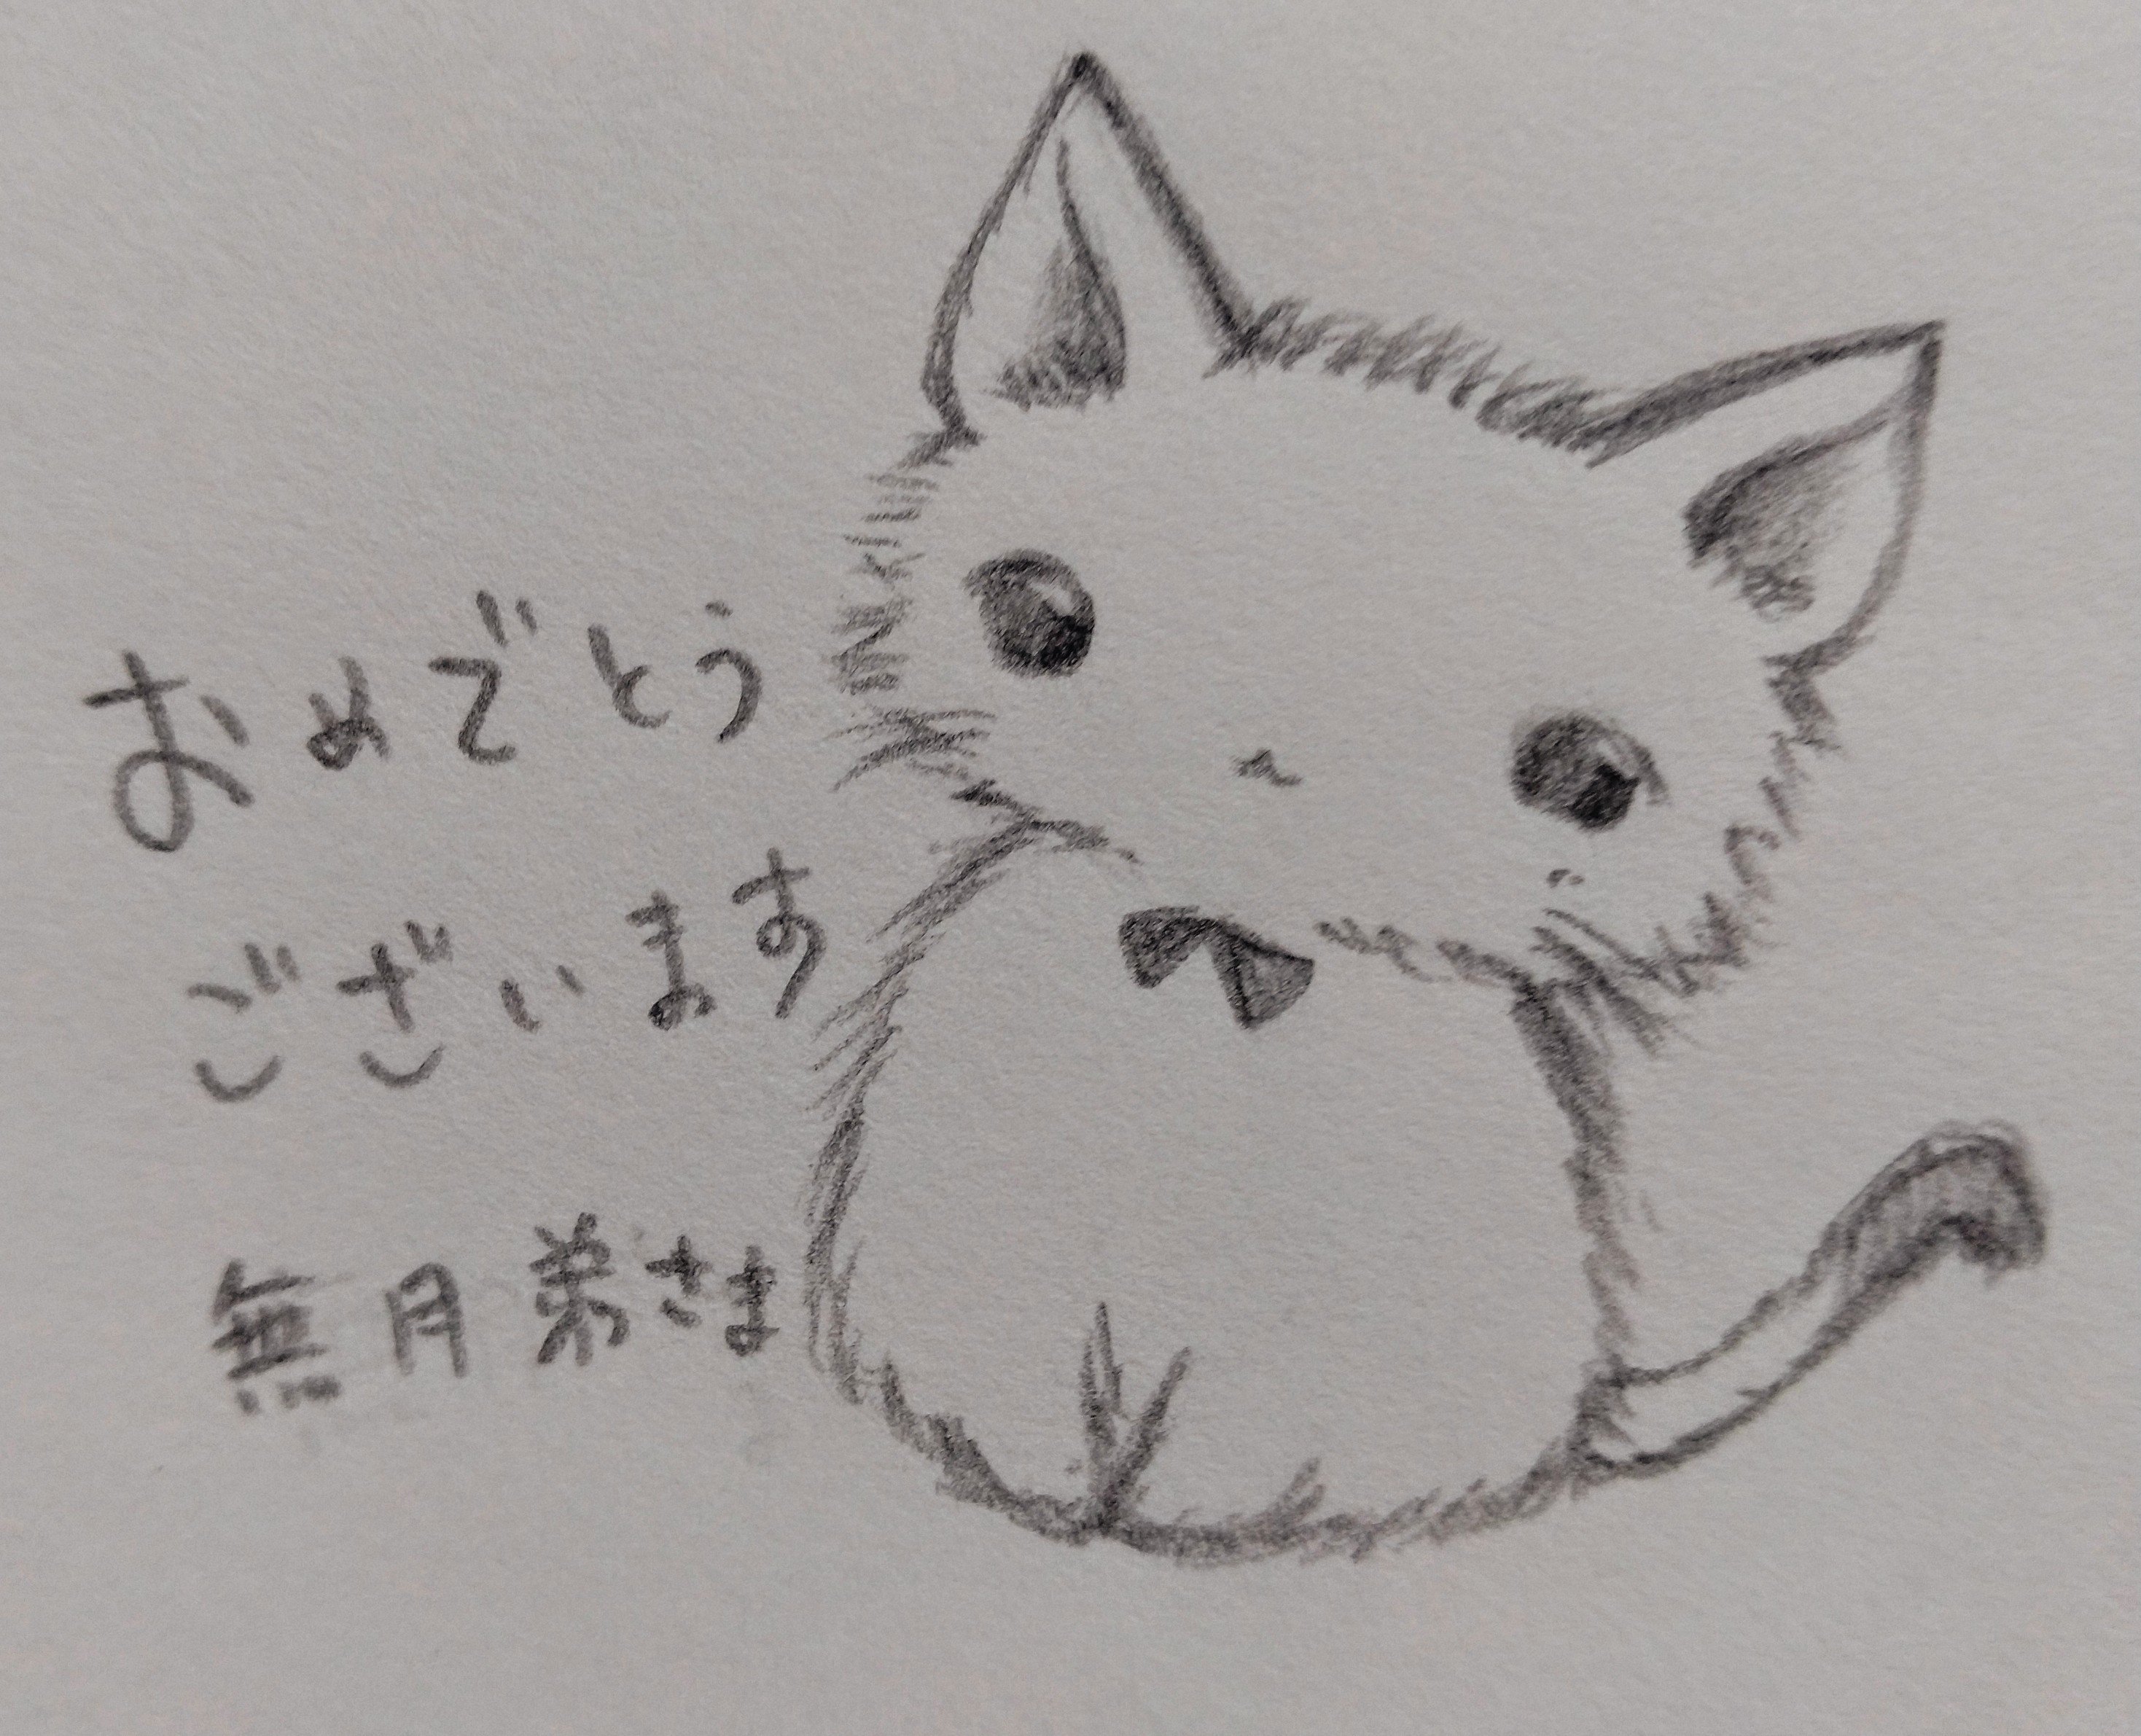 おめでとう
ございます
無月弟さま